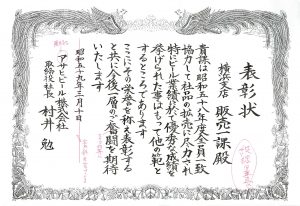 表彰状
横浜支店 販売一課殿
貴課は昭和五十八年度全員一致
協力して社品の拡売に尽力され
特にビール業績は優秀な成績を
挙げられた事はもって他の範と
するところであります
ここにその栄誉を称え表彰する
と共に今後一層のご奮闘を期待
いたします
昭和五十九年三月十日
アサヒビール株式会社
取締役社長 村井 勉